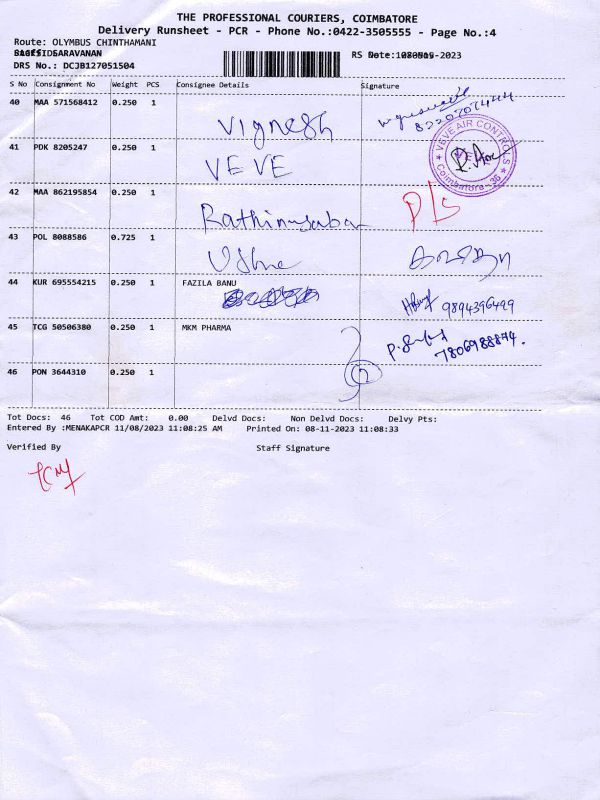 THE PROFESSIONAL COURIERS, COIMBATORE
Delivery Runsheet - PCR - Phone No.:0422-3505555 - Page No.:4
Route: OLYMBUS CHINTHAMANI
SARAVANAN
DRS No.: DCJB127051504
S No Consignment No Weight PCS Consignee Details Signature
40 MAA 571568412 0.250 1 Vignesh
41 PDK 8205247 0.250 1 VEVE
VEVE AIR CONTROLS
Coimbatore-36
42 MAA 862195854 0.250 1
43 POL 8088586 0.725 1
44 KUR 695554215 0.250 1 FAZILA BANU
9894396499
45 TCG 50506380 0.250 1 MKM PHARMA
7806988874.
46 PON 3644310 0.250 1
Tot Docs: 46 Tot COD Amt: 0.00 Delvd Docs: Non Delvd Docs: Delvy Pts:
Entered By :MENAKAPCR 11/08/2023 11:08:25 AM Printed On: 08-11-2023 11:08:33
Verified By Staff Signature